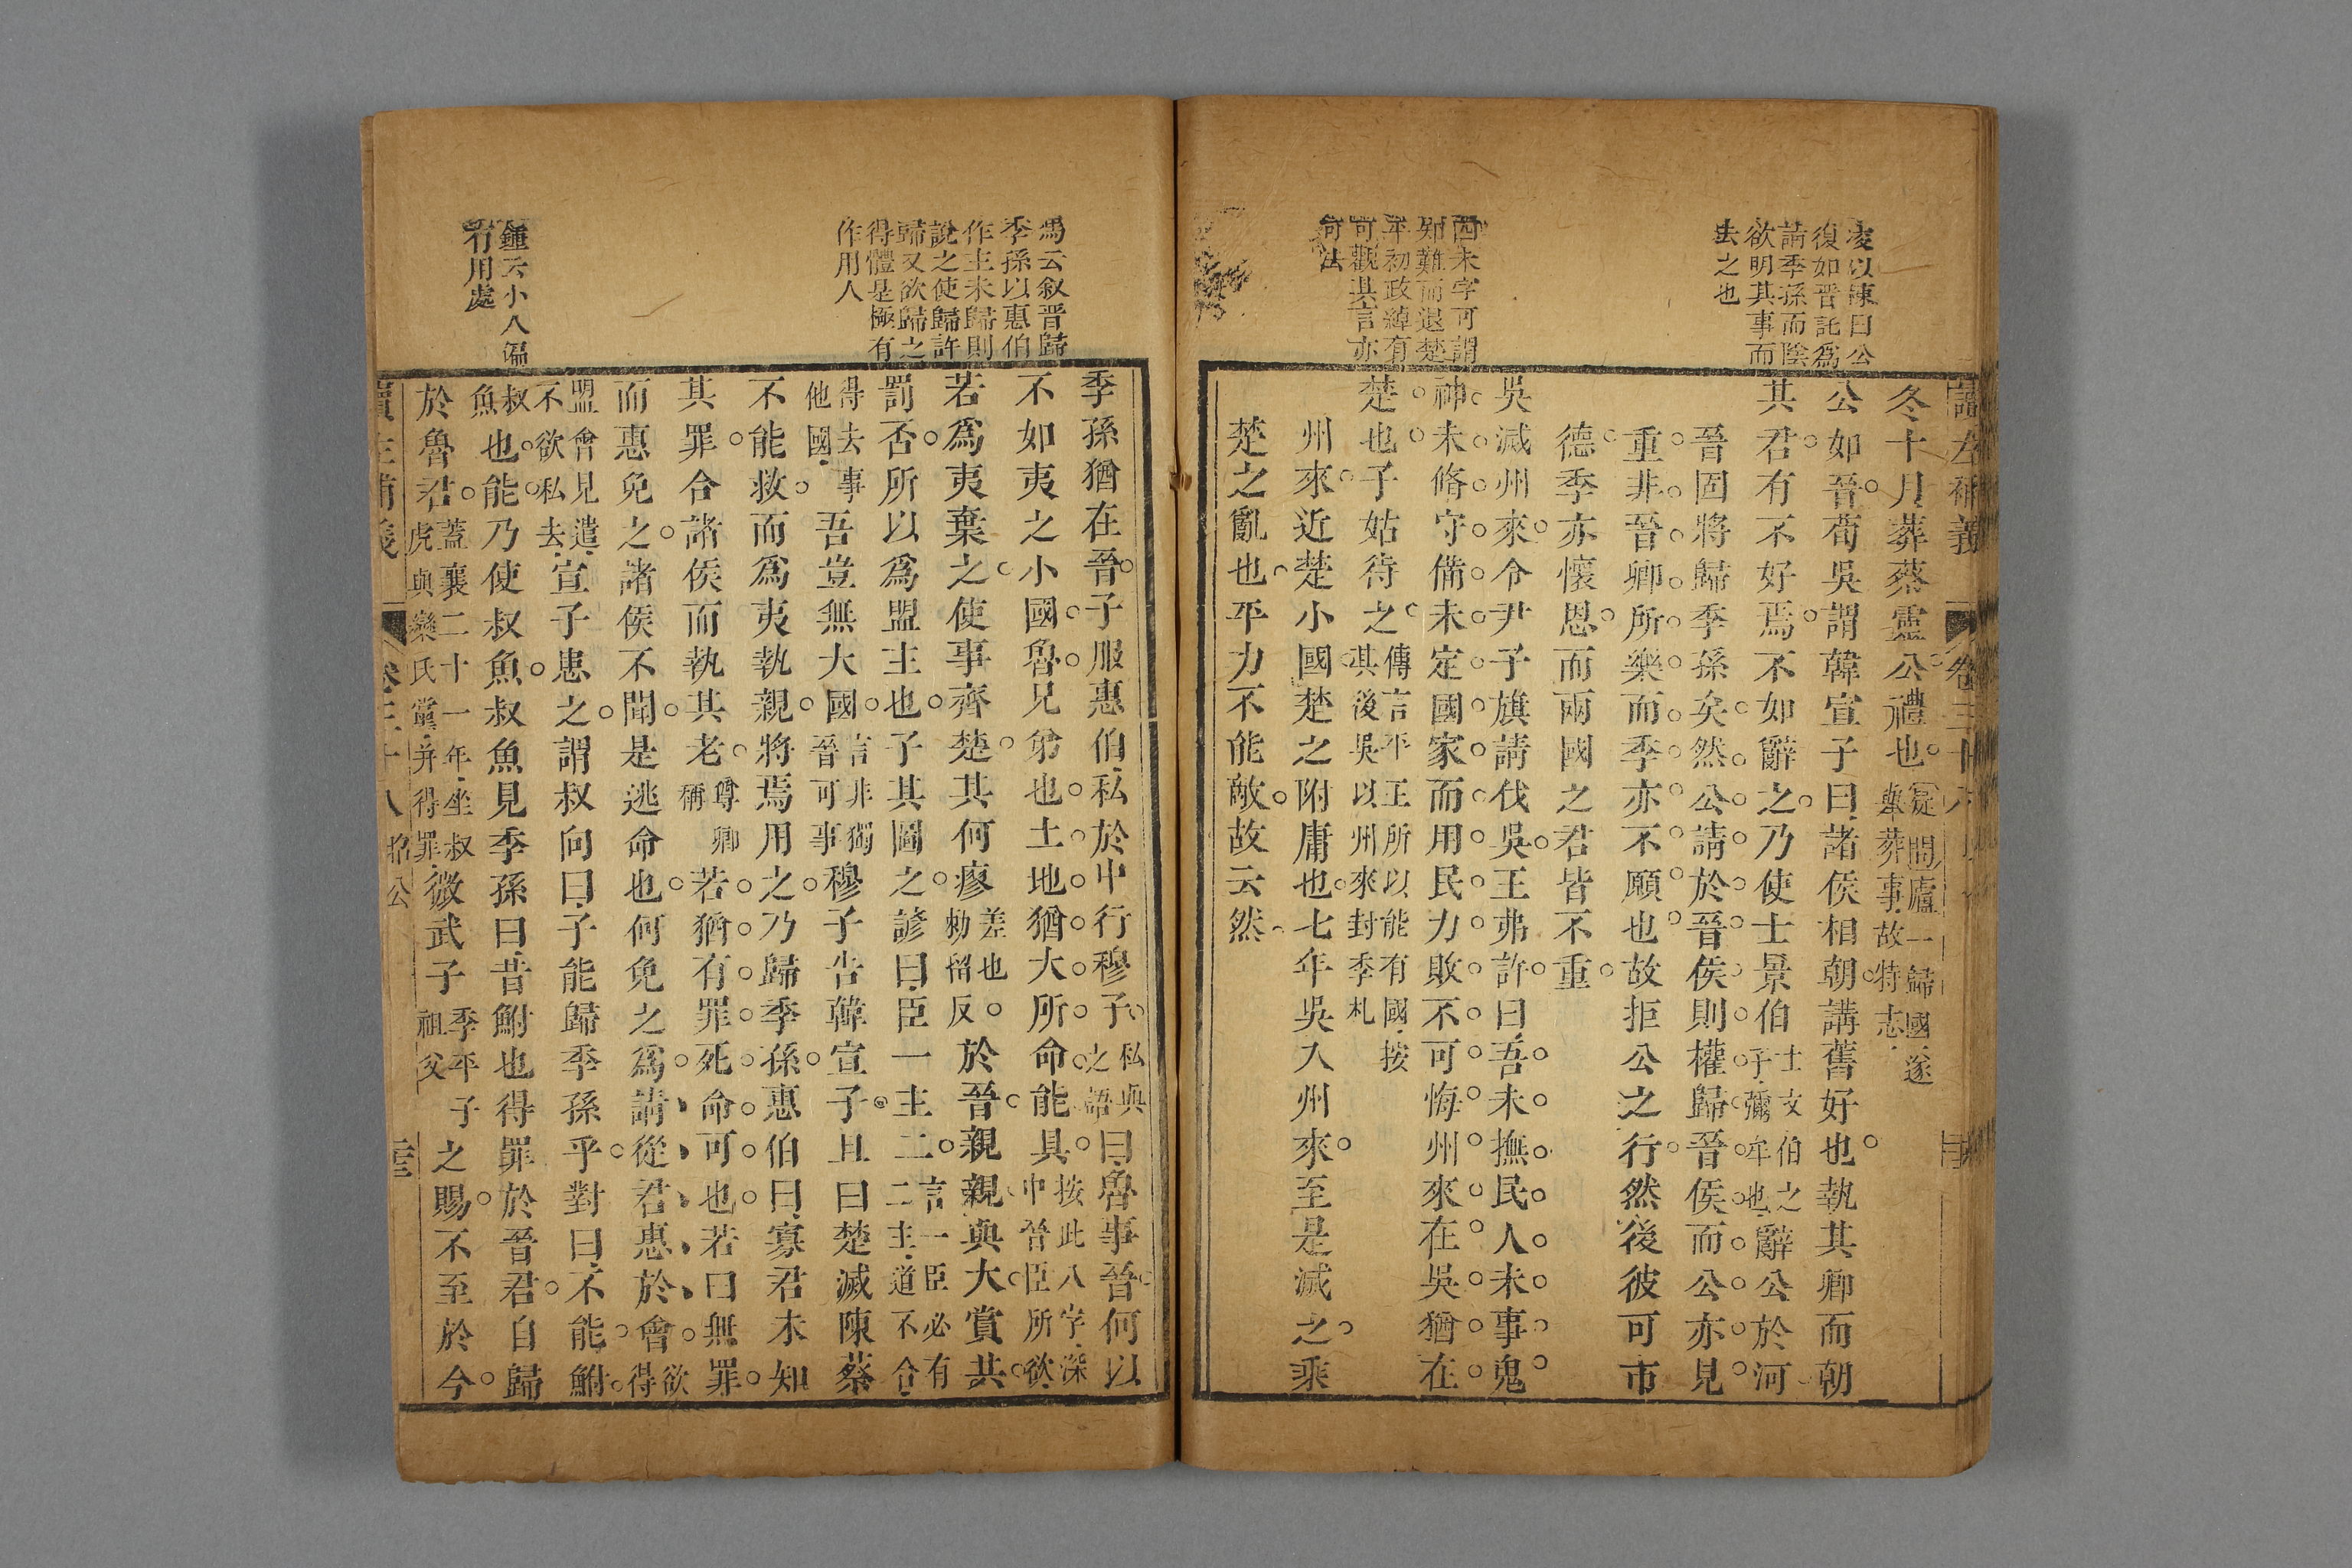 凌以棟曰公
復如晉託爲
請季孫而陰
欲明其事而
去之也
四未字可謂
知難而退楚
平初政綽有
可觀其言亦
可法
讀左補義
卷三十八
冬十月葬蔡靈公禮也
一歸國遂
葬事故特志
公如晉荀吳謂韓宣子曰諸侯相朝講舊好也執其卿而朝
其君有不好焉不如辭之乃使士景伯士文伯之子彌牟也辭公於河
晉固將歸季孫矣然公請於晉侯則權歸晉侯而公亦見
重非晉卿所樂而季亦不願也故拒公之行然後彼可市
德季亦懷恩而兩國之君皆不重
吳滅州來令尹子旗請伐吳王弗許曰吾未撫民人未事鬼
神未脩守備未定國家而用民力敗不可悔州來在吳猶在
楚也子姑待之傳言平王所以能有國按其後吳以州來封季札
州來近楚小國楚之附庸也七年吳入州來至是滅之乘
楚之亂也平力不能敵故云然
馮云叙晉歸
季孫以惠伯
作主未歸則
說之使歸許
歸又欲歸之
得體是極有
作用人
鍾云小人偏
有用處
季孫猶在晉子服惠伯私於中行穆子私與之語曰魯事晉何以
不如夷之小國魯兄弟也土地猶大所命能具按此八字深中晉臣所欲
若爲夷棄之使事齊楚其何瘳差也勑留反於晉親親與大賞共
罰否所以爲盟主也子其圖之諺曰臣一主二言一臣必有二主道不合
得去事他國吾豈無大國言非獨晉可事穆子告韓宣子且曰楚滅陳蔡
不能救而爲夷執親將焉用之乃歸季孫惠伯曰寡君未知
其罪合諸侯而執其老尊卿稱若猶有罪死命可也若曰無罪
而惠免之諸侯不聞是逃命也何免之爲請從君惠於會欲得
盟會見遣不欲私去宣子患之謂叔向曰子能歸季孫乎對曰不能鮒
叔魚也能乃使叔魚叔魚見季孫曰昔鮒也得罪於晉君自歸
於魯君蓋襄二十一年坐叔虎與欒氏黨并得罪微武子季平子祖父之賜不至於今
昭公